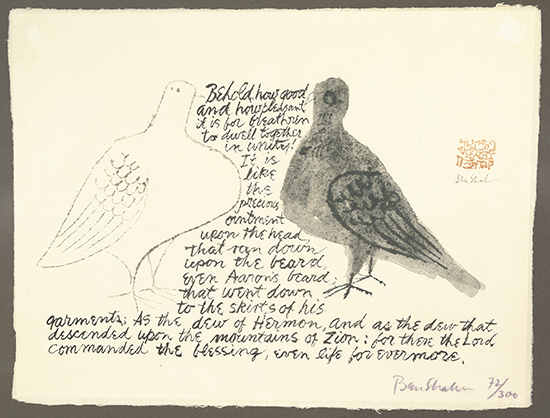 Behold, how good
and how pleasant
it is for breathren
to dwell together
in unity!
It is
like
the
precious
ointment
upon the head
that ran down
upon the beard
even Aaron's beard;
that went down
to the skirts of his
garments; As the dew of Hermon, and as the dew that
descended upon the mountains of Zion: for there the Lord
commanded the blessing, even life for evermore.
Ben Shahn
Ben Shahn 72/300